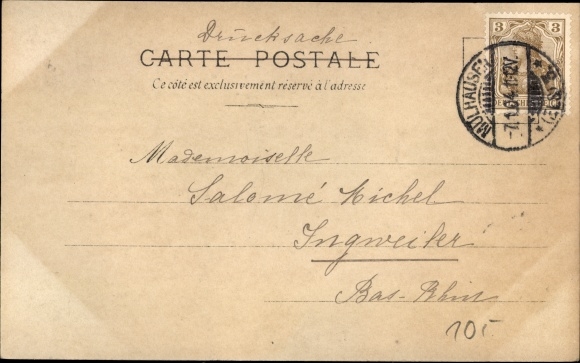 Drucksache
CARTE POSTALE
Ce côté est exclusivement réservé à l'adresse
3 3
MÜLHAUSEN
7.1.04.11-12V.
* (ELS.) *
Mademoiselle
Salomé Michel
Ingweiler
Bas-Rhin
105